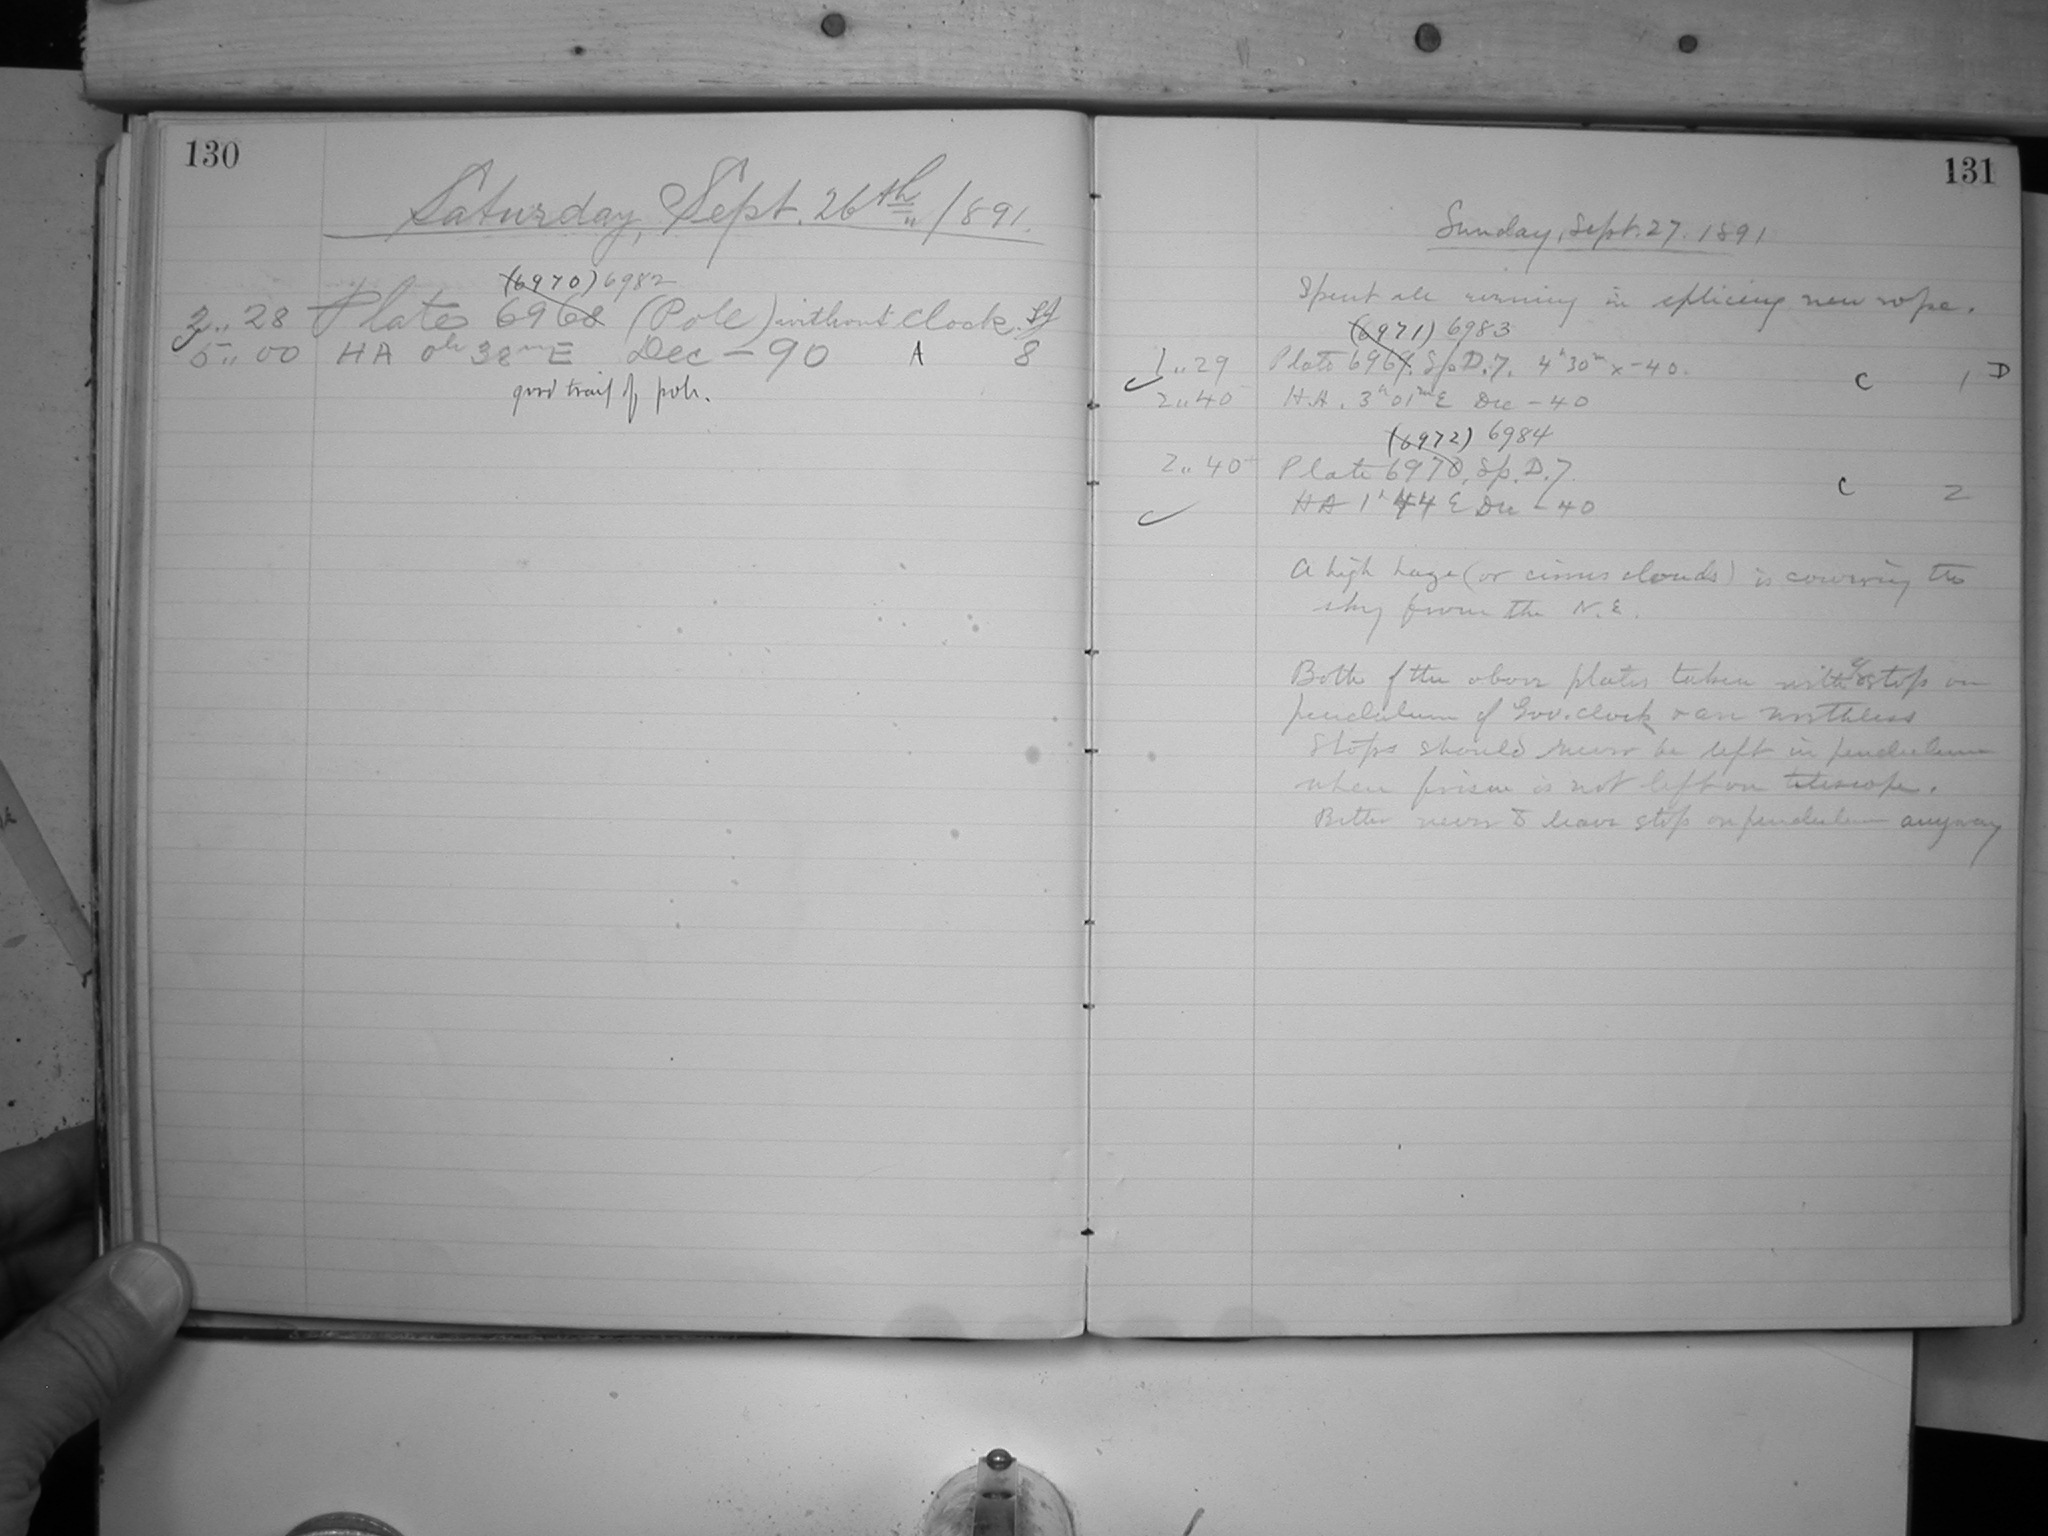 130
Saturday, Sept. 26th, 1891.
(6970) 6982
2 .. 28 Plate 6968 (Pole) without clock.
5 .. 00 HA 0h 38m E Dec - 90 A 8
good trail of pole.
131
Sunday, Sept. 27. 1891
Spent all evening in splicing new rope.
(6971) 6983
1 .. 29 Plate 6969. Sp. D. 7. 4h 30m x -40. C 1 D
2 .. 40 H.A. 3h 01m E Dec - 40
(6972) 6984
2 .. 40 Plate 6970. Sp. D. 7. C 2
HA 1h 44 E Dec - 40
A high haze (or cirrus clouds) is covering the
sky from the N.E.
Both of the above plates taken with stop on
pendulum of Gov. clock & are worthless
Stops should never be left in pendulum
when prism is not left on telescope.
Better never to leave stop on pendulum anyway